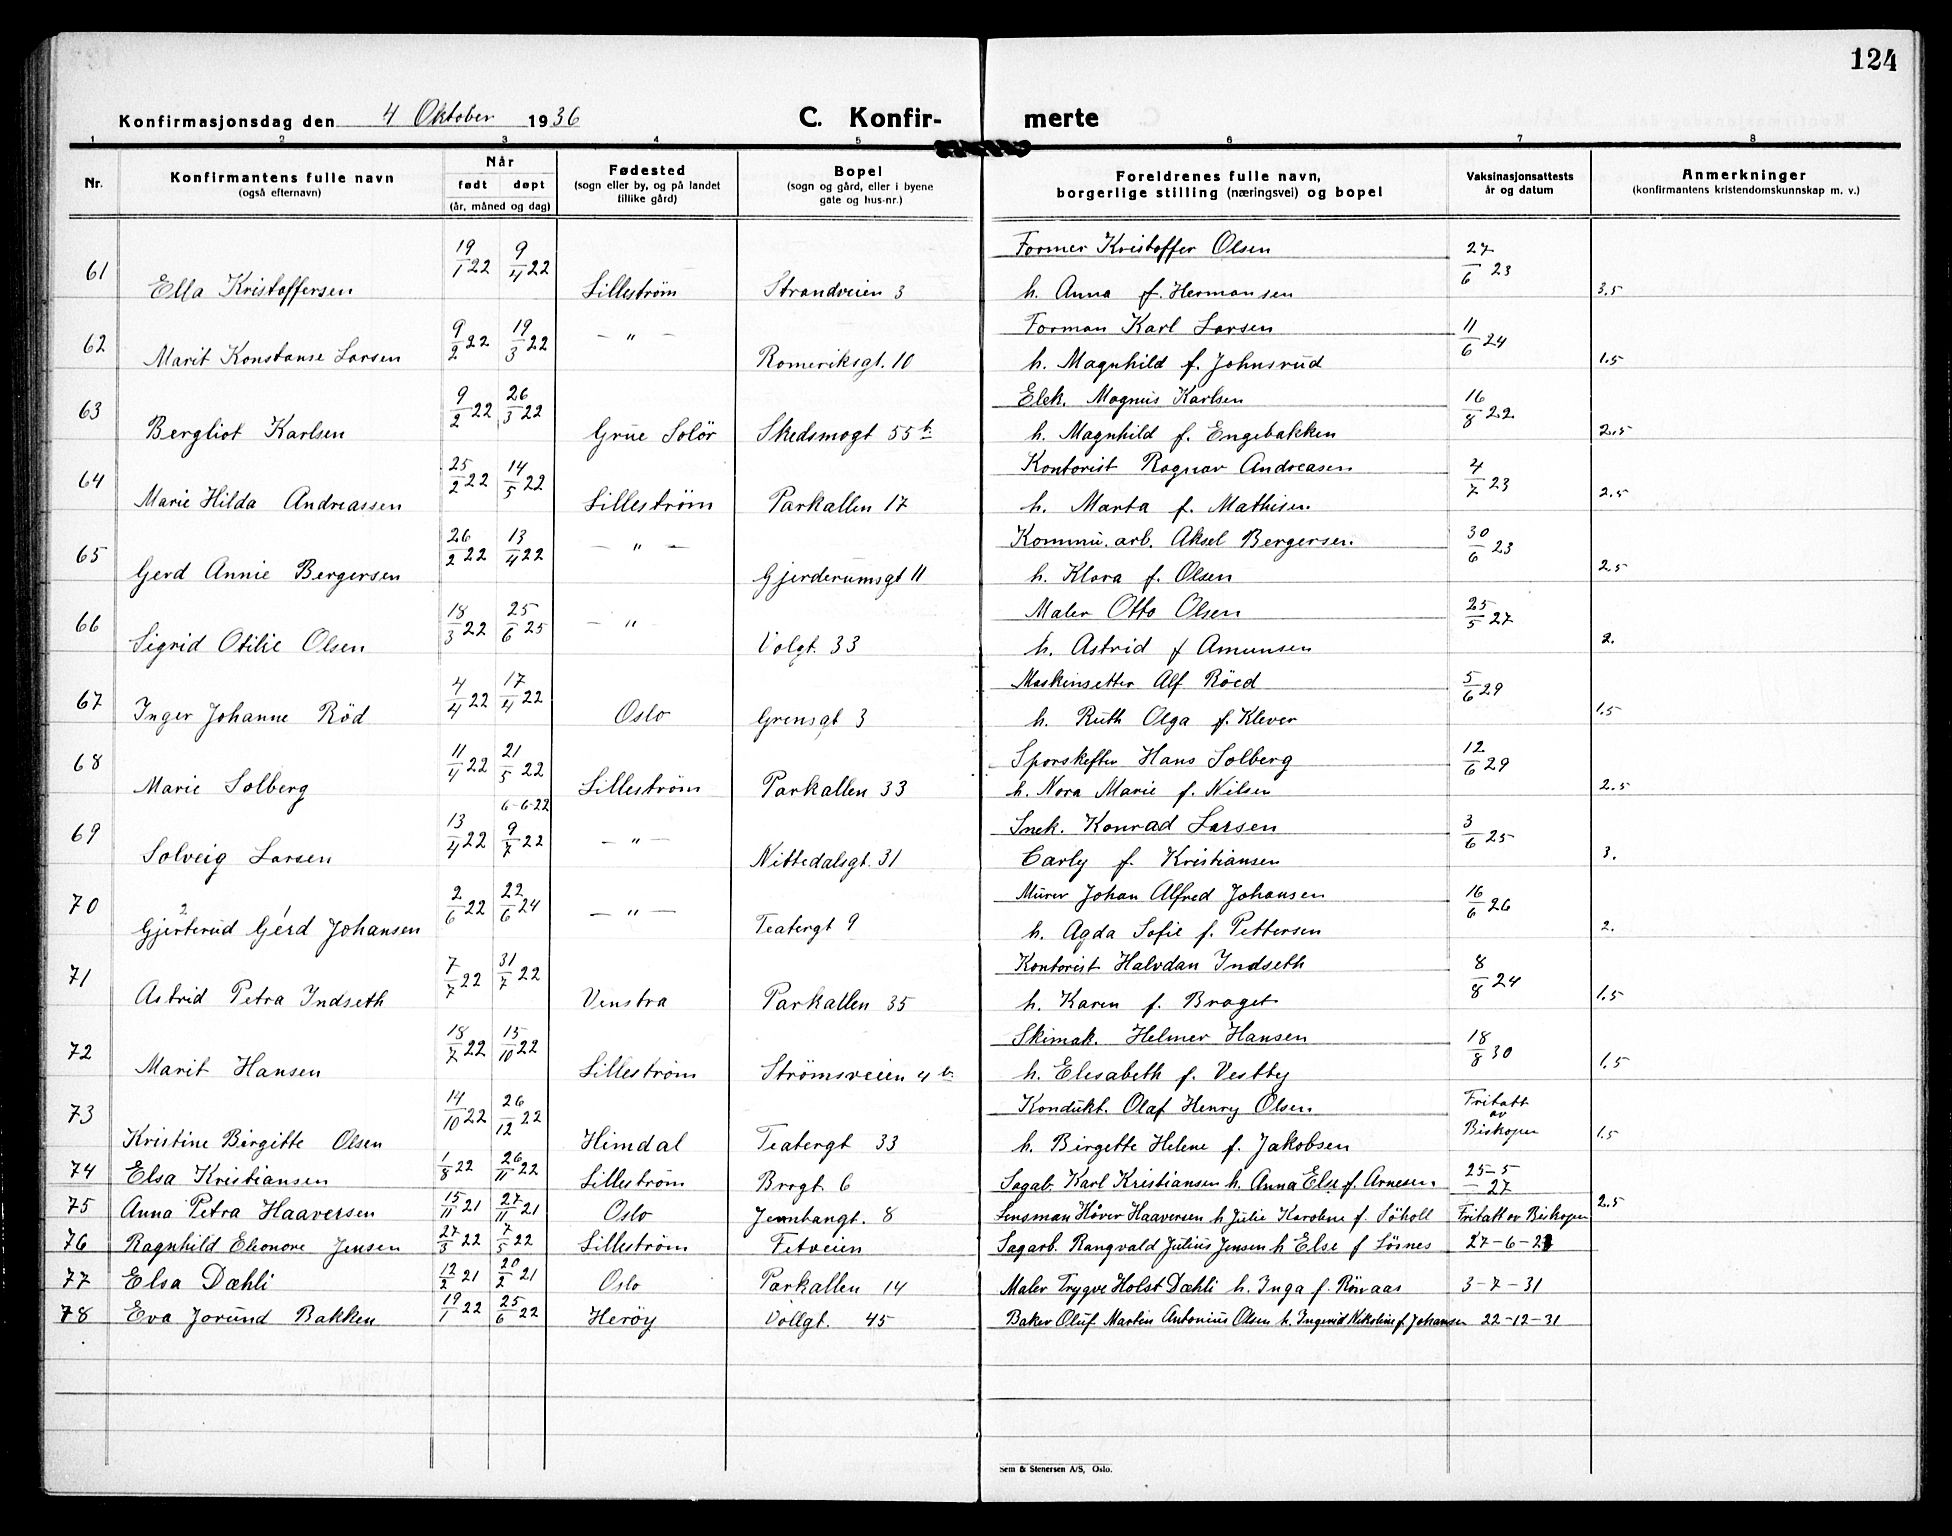 124
Konfirmasjonsdag den 4 Oktober 1936 C. Konfir- merte
1 2 3 4 5 6 7 8
Nr. Konfirmantens fulle navn (også efternavn) Når født døpt (år, måned og dag) Fødested (sogn eller by, og på landet tillike gård) Bopel (sogn og gård, eller i byene gate og hus-nr.) Foreldrenes fulle navn, borgerlige stilling (næringsvei) og bopel Vaksinasjonsattests år og datum Anmerkninger (konfirmantens kristendomskunnskap m. v.)
61 Ella Kristoffersen 19/1 22 9/4 22 Lillestrøm Strandveien 3 Former Kristoffer Olsen h. Anna f. Hermansen 27/6 23 3.5
62 Marit Konstanse Larsen 9/2 22 19/3 22 — " — Romeriksgt. 10 Forman Karl Larsen h. Magnhild f. Johnsrud 11/6 24 1.5
63 Bergliot Karlsen 9/2 22 26/3 22 Grue Solör Skedsmogt 55 b Elek. Magnus Karlsen h. Magnhild f. Engebakken 16/8 22 2.5
64 Marie Hilda Andreassen 25/2 22 14/5 22 Lillestrøm Parkallen 17 Kontorist Ragnar Andreasen h. Marta f. Mathisen 4/7 23 2.5
65 Gerd Annie Bergersen 26/2 22 13/4 22 — " — Gjerderumsgt 11 Kommu. arb. Aksel Bergersen h. Klara f. Olsen 30/6 23 2.5
66 Sigrid Otilie Olsen 18/3 22 25/6 25 — " Volgt. 33 Maler Otto Olsen h. Astrid f Amunsen 25/5 27 2.
67 Inger Johanne Röd 4/4 22 17/4 22 Oslo Grensgt 3 Maskinsetter Alf Röed h. Ruth Olga f. Klever 5/6 29 1.5
68 Marie Solberg 11/4 22 21/5 22 Lillestrøm Parkallen 33 Sporskefter Hans Solberg h. Nora Marie f. Nilsen 12/6 29 2.5
6-6-22
69 Solveig Larsen 13/4 22 9/7 22 — " — Nittedalsgt. 31 Snek. Konrad Larsen Carly f. Kristiansen 3/6 25 3.
70 Gjerterud Gerd Johansen 2/6 22 22/6 24 — " — Teatergt 9 Murer Johan Alfred Johansen h. Agda Sofie f. Pettersen 16/6 26 2.
71 Astrid Petra Indseth 7/7 22 31/7 22 Vinstra Parkallen 35 Kontorist Halvdan Indseth h. Karen f. Braget 8/8 24 1.5
72 Marit Hansen 18/7 22 15/10 22 Lillestrøm Strømsveien 4 b. Skimak. Helmer Hansen h. Elisabeth f. Vestby 18/8 30 1.5
73 Kristine Birgitte Olsen 14/10 22 26/12 22 Himdal Teatergt 33 Kondukt. Olaf Henry Olsen h. Birgette Helene f. Jakobsen Fritatt av Biskopen 1.5
74 Elsa Kristiansen 1/8 22 26/11 22 Lillestrøm Brogt. 6 Sagab. Karl Kristiansen h. Anna Else f. Arnesen 25-5-27
75 Anna Petra Haaversen 15/11 21 27/11 21 Oslo Jernbangt. 8 Lensman Håver Haaversen h Julie Karoline f. Söholt Fritatt av Biskopen 2.5
76 Ragnhild Eleonore Jensen 27/3 22 7/5 22 Lillestrøm Fetveien Sagarb. Rangvald Julius Jensen h Else f Lösnes 27-6-23
77 Elsa Dæhli 12/2 21 20/2 21 Oslo Parkallen 14 Maler Trygve Holst Dæhli h. Inga f. Rönaas 3-7-31
78 Eva Jorund Bakken 19/1 22 25/6 22 Heröy Vollgt. 45 Baker Oluf Martin Antonius Olsen h. Ingerid f. Johansen 22-12-31
Sem & Stenersen A/S, Oslo.